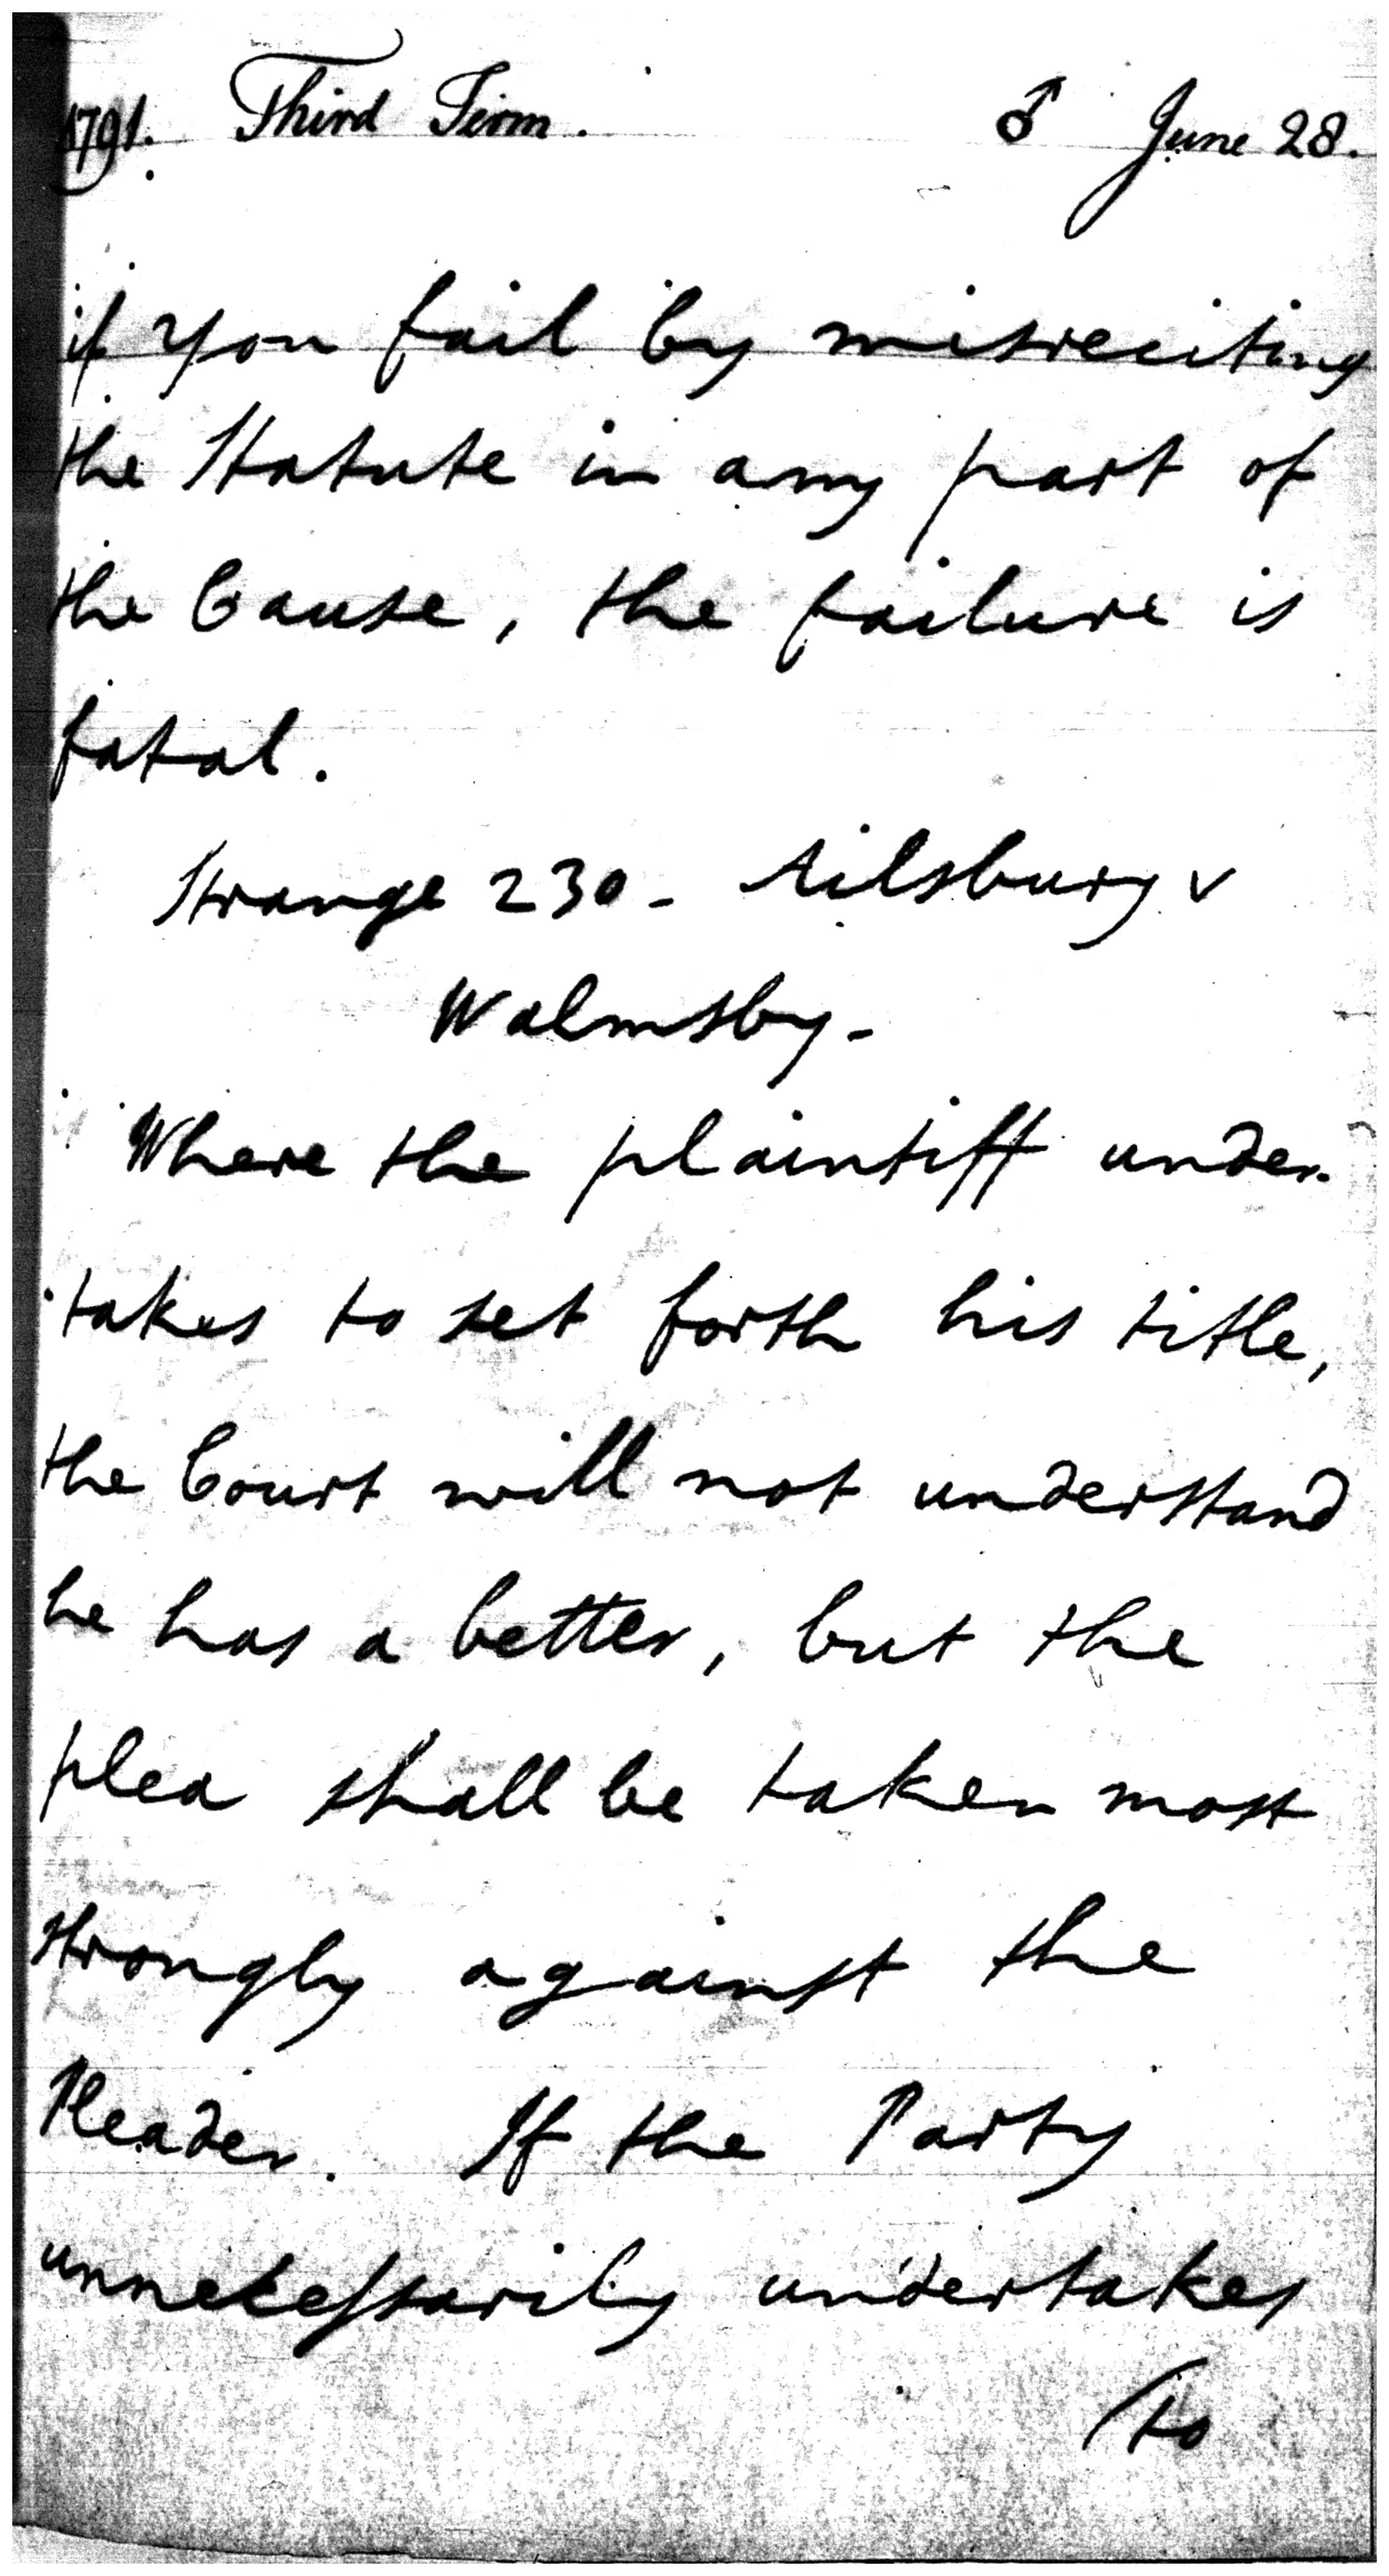 1791. Third Term. ♂ June 28.
if you fail by misreciting
the Statute in any part of
the Cause, the failure is
fatal.
Strange 230 - Ailsbury v
Walmsby -
Where the plaintiff under-
takes to set forth his title,
the Court will not understand
he has a better, but the
plea shall be taken most
strongly against the
Pleader. If the Party
unnecessarily undertakes
(to